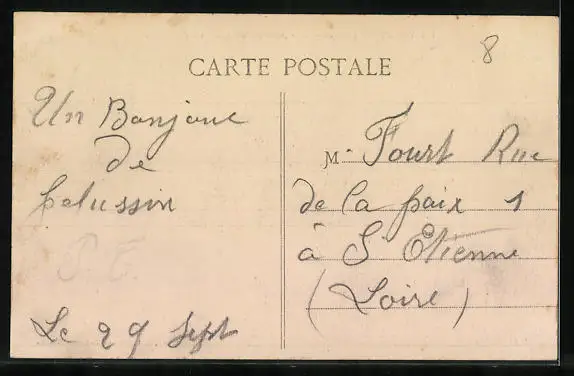 CARTE POSTALE
8
Un Bonjour
de
Pelussin
P. E.
Le 29 Sept
M. Fourt Rue
de la paix 1
à St Etienne
(Loire)